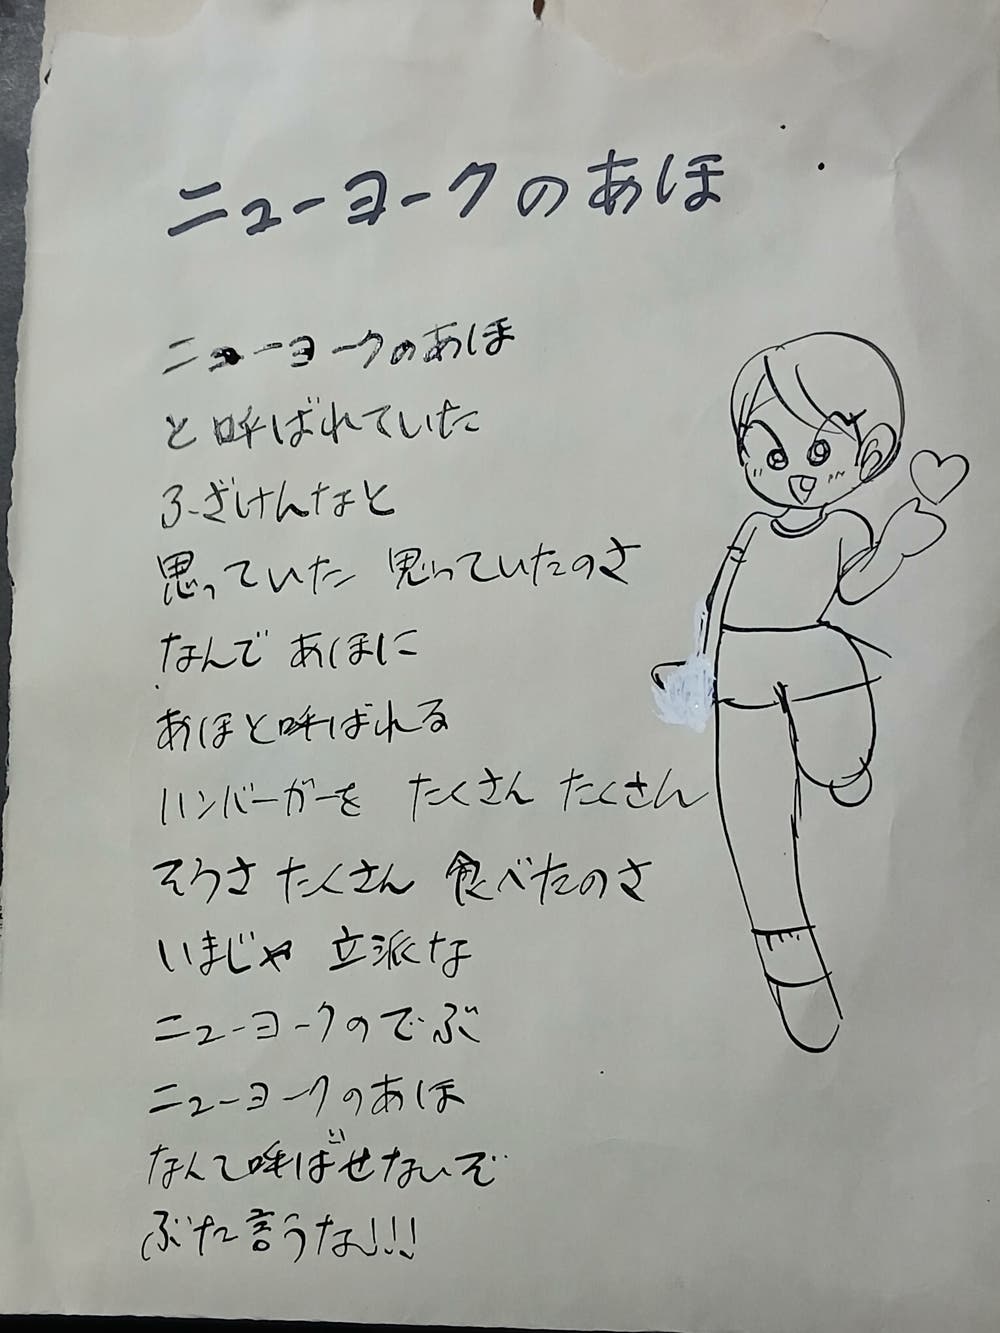 ニューヨークのあほ
ニューヨークのあほ
と呼ばれていた
ふざけんなと
思っていた 思っていたのさ
なんで あほに
あほと呼ばれる
ハンバーガーを たくさん たくさん
そうさ たくさん 食べたのさ
いまじゃ 立派な
ニューヨークのでぶ
ニューヨークのあほ
なんて呼ばせないぞ
ぶた言うな!!!